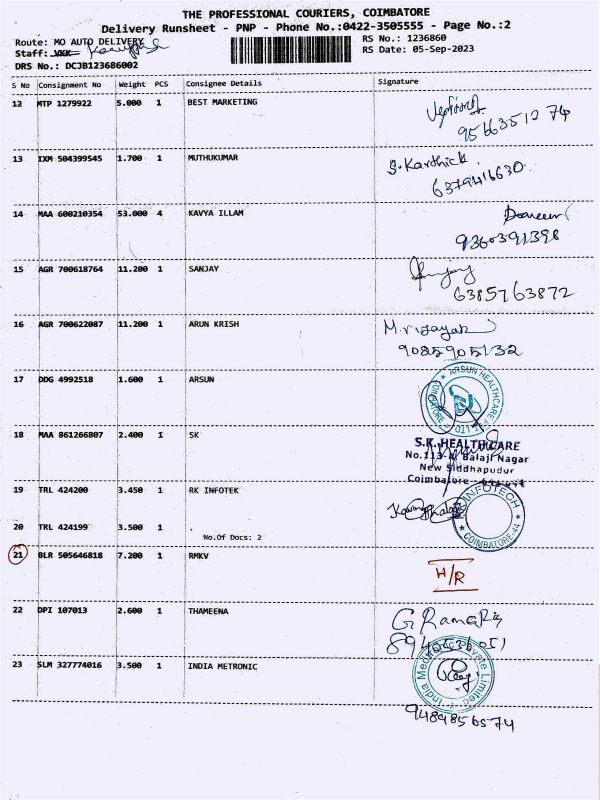 THE PROFESSIONAL COURIERS, COIMBATORE
Delivery Runsheet - PNP - Phone No.:0422-3505555 - Page No.:2
Route: MO AUTO DELIVERY
RS No.: 1236860
Staff: VKK
RS Date: 05-Sep-2023
DRS No.: DCJB123686002
S No Consignment No Weight PCS Consignee Details Signature
12 MTP 1279922 5.000 1 BEST MARKETING
9566351274
13 IXM 504399545 1.700 1 MUTHUKUMAR
S. Karthick
6379416630
14 MAA 600210354 53.000 4 KAVYA ILLAM
9360391398
15 AGR 700618764 11.200 1 SANJAY
6385763872
16 AGR 700622087 11.200 1 ARUN KRISH
M. Vijayak
9085905132
17 DDG 4992518 1.600 1 ARSUN
ARSUN HEALTHCARE P LTD COIMBATORE
18 MAA 861266807 2.400 1 SK
S.K.HEALTHCARE
No.113- Balaji Nagar
New Siddhapudur
Coimbatore
19 TRL 424200 3.450 1 RK INFOTEK
INFOTECH
COIMBATORE-44
20 TRL 424199 3.500 1 .
No.Of Docs: 2
21 BLR 505646818 7.200 1 RMKV
H/R
22 DPI 107013 2.600 1 THAMEENA
23 SLM 327774016 3.500 1 INDIA METRONIC
India Private Limited
9489856574